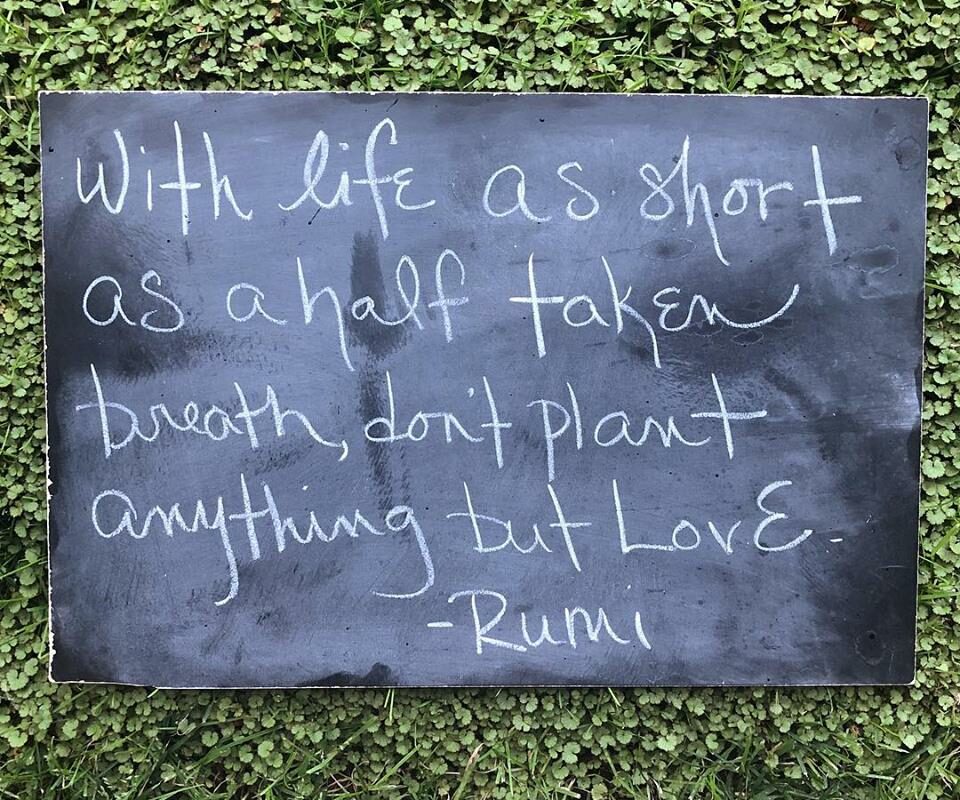 With life as short
as a half taken
breath, don't plant
anything but LovE.
-Rumi